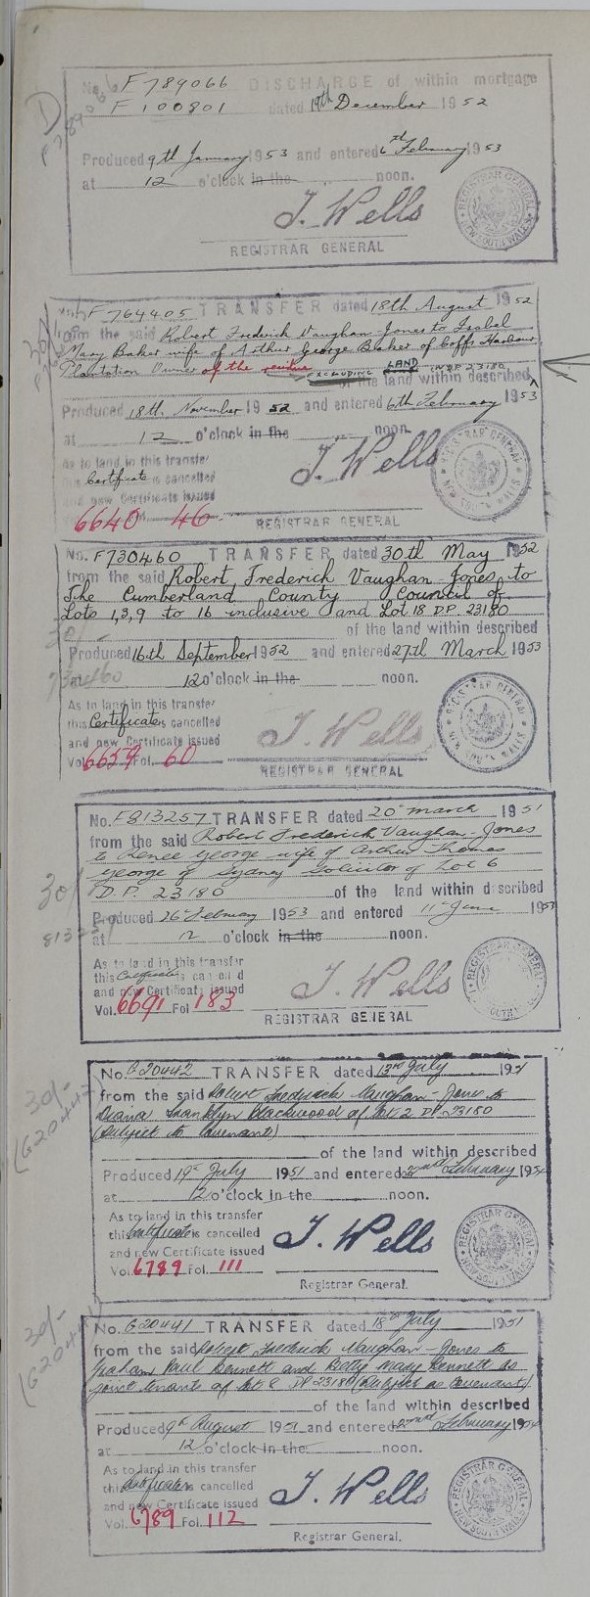 No. F789066 DISCHARGE of within mortgage
F100801 dated 19th December 1952
Produced 9th January 1953 and entered 6th February 1953
at 12 o'clock in the noon.
J. Wells
REGISTRAR GENERAL
REGISTRAR GENERAL NEW SOUTH WALES
No. F764405 TRANSFER dated 18th August 1952
from the said Robert Frederick Vaughan-Jones to Isobel
Mary Baker wife of Arthur George Baker of Coffs Harbour
Plantation Owner of the residue EXCLUDING LAND IN D.P. 23180
of the land within described
Produced 18th November 1952 and entered 6th February 1953
at 12 o'clock in the noon.
As to land in this transfer
this Certificate is cancelled
and new Certificate issued
6640 46
J. Wells
REGISTRAR GENERAL
No. F730460 TRANSFER dated 30th May 1952
from the said Robert Frederick Vaughan Jones to
The Cumberland County Council of
Lots 1,3,9 to 16 inclusive and Lot 18 D.P. 23180
of the land within described
Produced 16th September 1952 and entered 27th March 1953
at 12 o'clock in the noon.
As to land in this transfer
this Certificate is cancelled
and new Certificate issued
Vol. 6659 Fol. 60
J. Wells
REGISTRAR GENERAL
30/-
No. F813257 TRANSFER dated 20th march 1951
from the said Robert Frederick Vaughan-Jones
to Renee George wife of Arthur Thomas
George of Sydney Solicitor of Lot 6
D.P. 23180 of the land within described
Produced 26th February 1953 and entered 11th June 1953
at 12 o'clock in the noon.
As to land in this transfer
this Certificate is cancelled
and new Certificate issued
Vol. 6691 Fol 183
J. Wells
REGISTRAR GENERAL
30/-
(G20442)
No. G20442 TRANSFER dated 13th July 1951
from the said Robert Frederick Vaughan-Jones to
Diana Blackwood of Lot 2 DP 23180
(Subject to Covenant)
of the land within described
Produced 19th July 1951 and entered 22nd February 1954
at 12 o'clock in the noon.
As to land in this transfer
this Certificate is cancelled
and new Certificate issued
Vol. 6789 Fol. 111
J. Wells
Registrar General.
30/-
(G20441)
No. G20441 TRANSFER dated 18th July 1951
from the said Robert Frederick Vaughan-Jones to
Graham Paul Bennett and Betty Mary Bennett as
joint tenants of Lot 8 DP 23180 (Subject to Covenant)
of the land within described
Produced 9th August 1951 and entered 22nd February 1954
at 12 o'clock in the noon.
As to land in this transfer
this Certificate is cancelled
and new Certificate issued
Vol. 6789 Fol. 112
J. Wells
Registrar General.